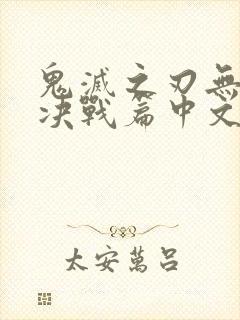 鬼滅之刃無
决戰篇中文
太安萬呂